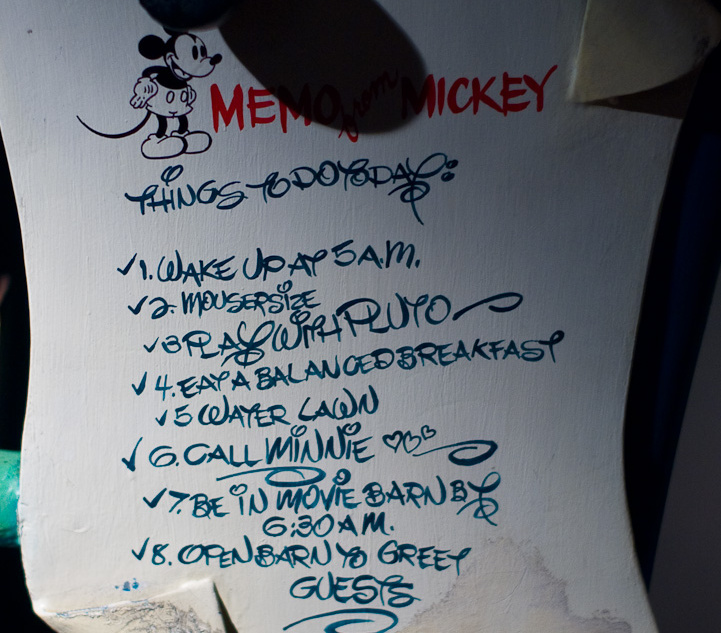 MEMO from MICKEY
THINGS TO DO TODAY:
✓1. WAKE UP AT 5 A.M.
✓2. MOUSERSIZE
✓3 PLAY WITH PLUTO
✓4. EAT A BALANCED BREAKFAST
✓5 WATER LAWN
✓6. CALL MINNIE ♡♡♡
✓7. BE IN MOVIE BARN BY
6:30 A.M.
✓8. OPEN BARN TO GREET
GUESTS